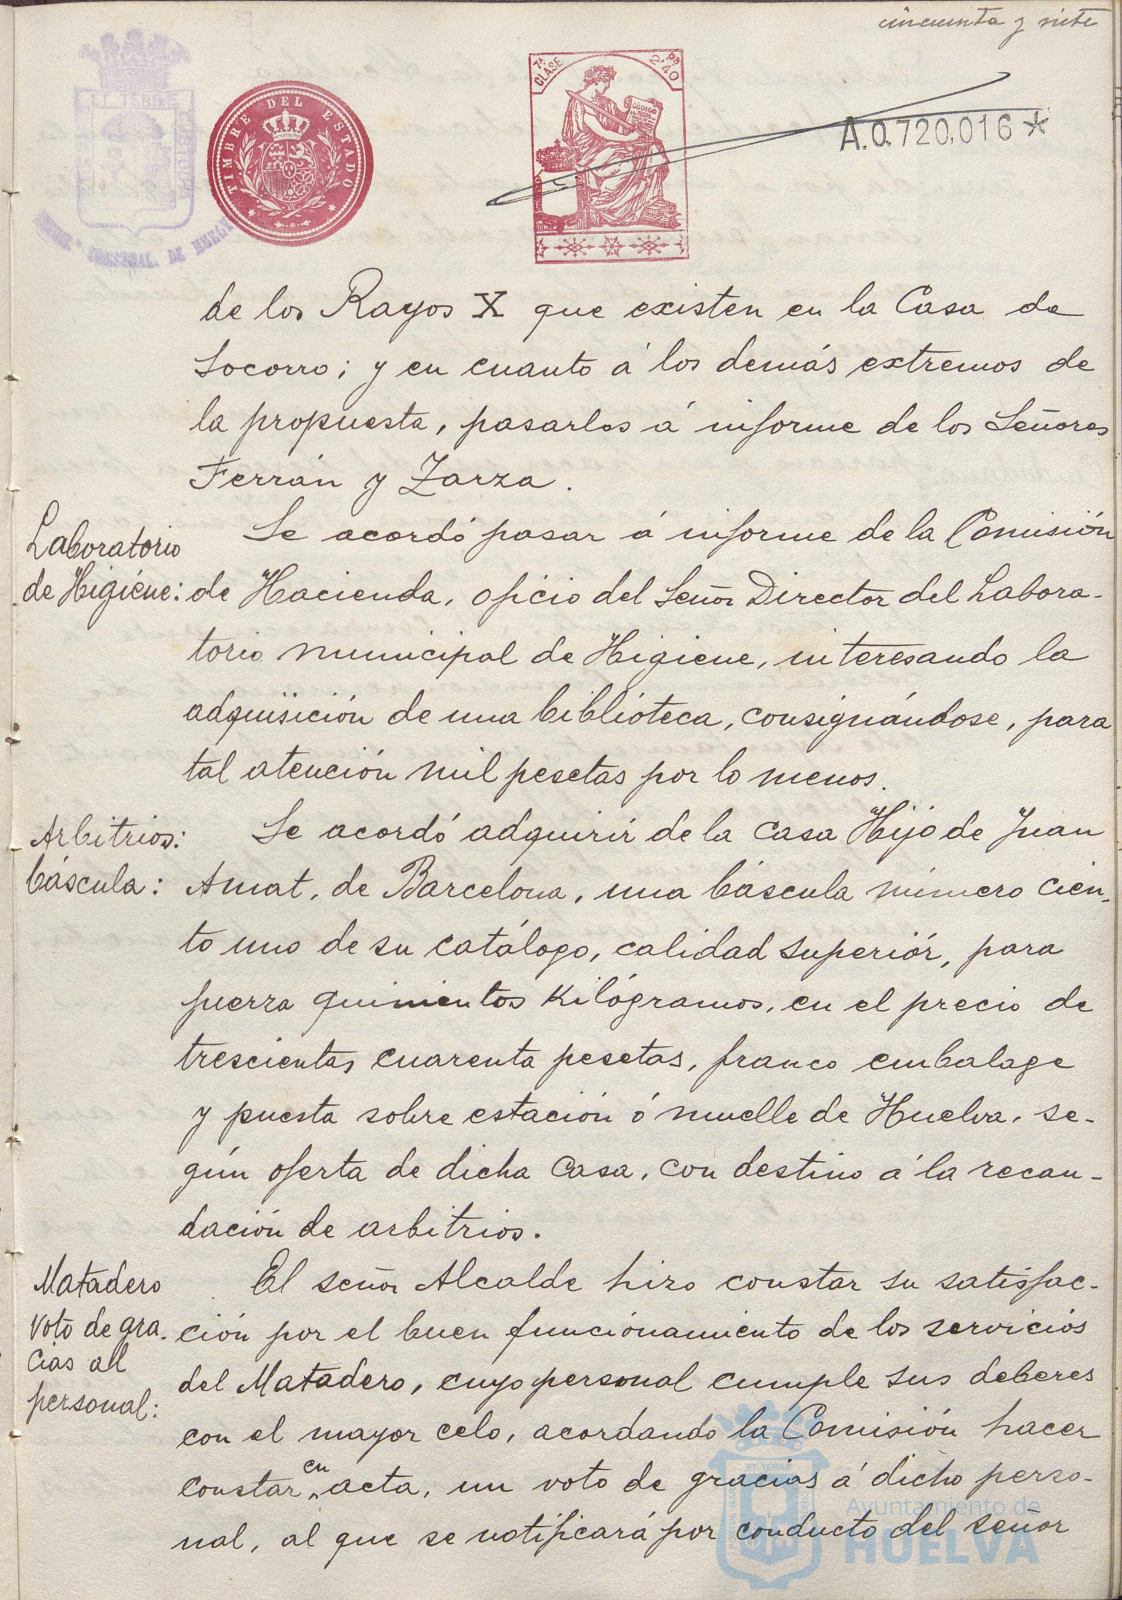 cincuenta y siete
TIMBRE DEL ESTADO
7ª CLASE
2'40
CODIGO
A.0.720,016*
de los Rayos X que existen en la Casa de
Socorro; y en cuanto á los demás extremos de
la propuesta, pasarlos á informe de los Señores
Ferrán y Zarza.
Laboratorio
de Higiéne:
Se acordó pasar á informe de la Comisión
de Hacienda, oficio del Señor Director del Labora-
torio municipal de Higiene, interesando la
adquisición de una biblioteca, consignándose, para
tal atención mil pesetas por lo menos.
Arbitrios:
báscula:
Se acordó adquirir de la casa Hijo de Juan
Amat, de Barcelona, una báscula número cien-
to uno de su catálogo, calidad superiór, para
fuerza quinientos Kilógramos, en el precio de
trescientas cuarenta pesetas, franco embalage
y puesta sobre estación ó muelle de Huelva, se-
gún oferta de dicha casa, con destino á la recau-
dación de arbitrios.
Matadero
voto de gra-
cias al
personal:
El señor Alcalde hizo constar su satisfac-
ción por el buen funciónamiento de los servicios
del Matadero, cuyo personal cumple sus deberes
con el mayor celo, acordando la Comisión hacer
constar en acta, un voto de gracias á dicho perso-
nal, al que se notificará por conducto del señor
Ayuntamiento de
HUELVA